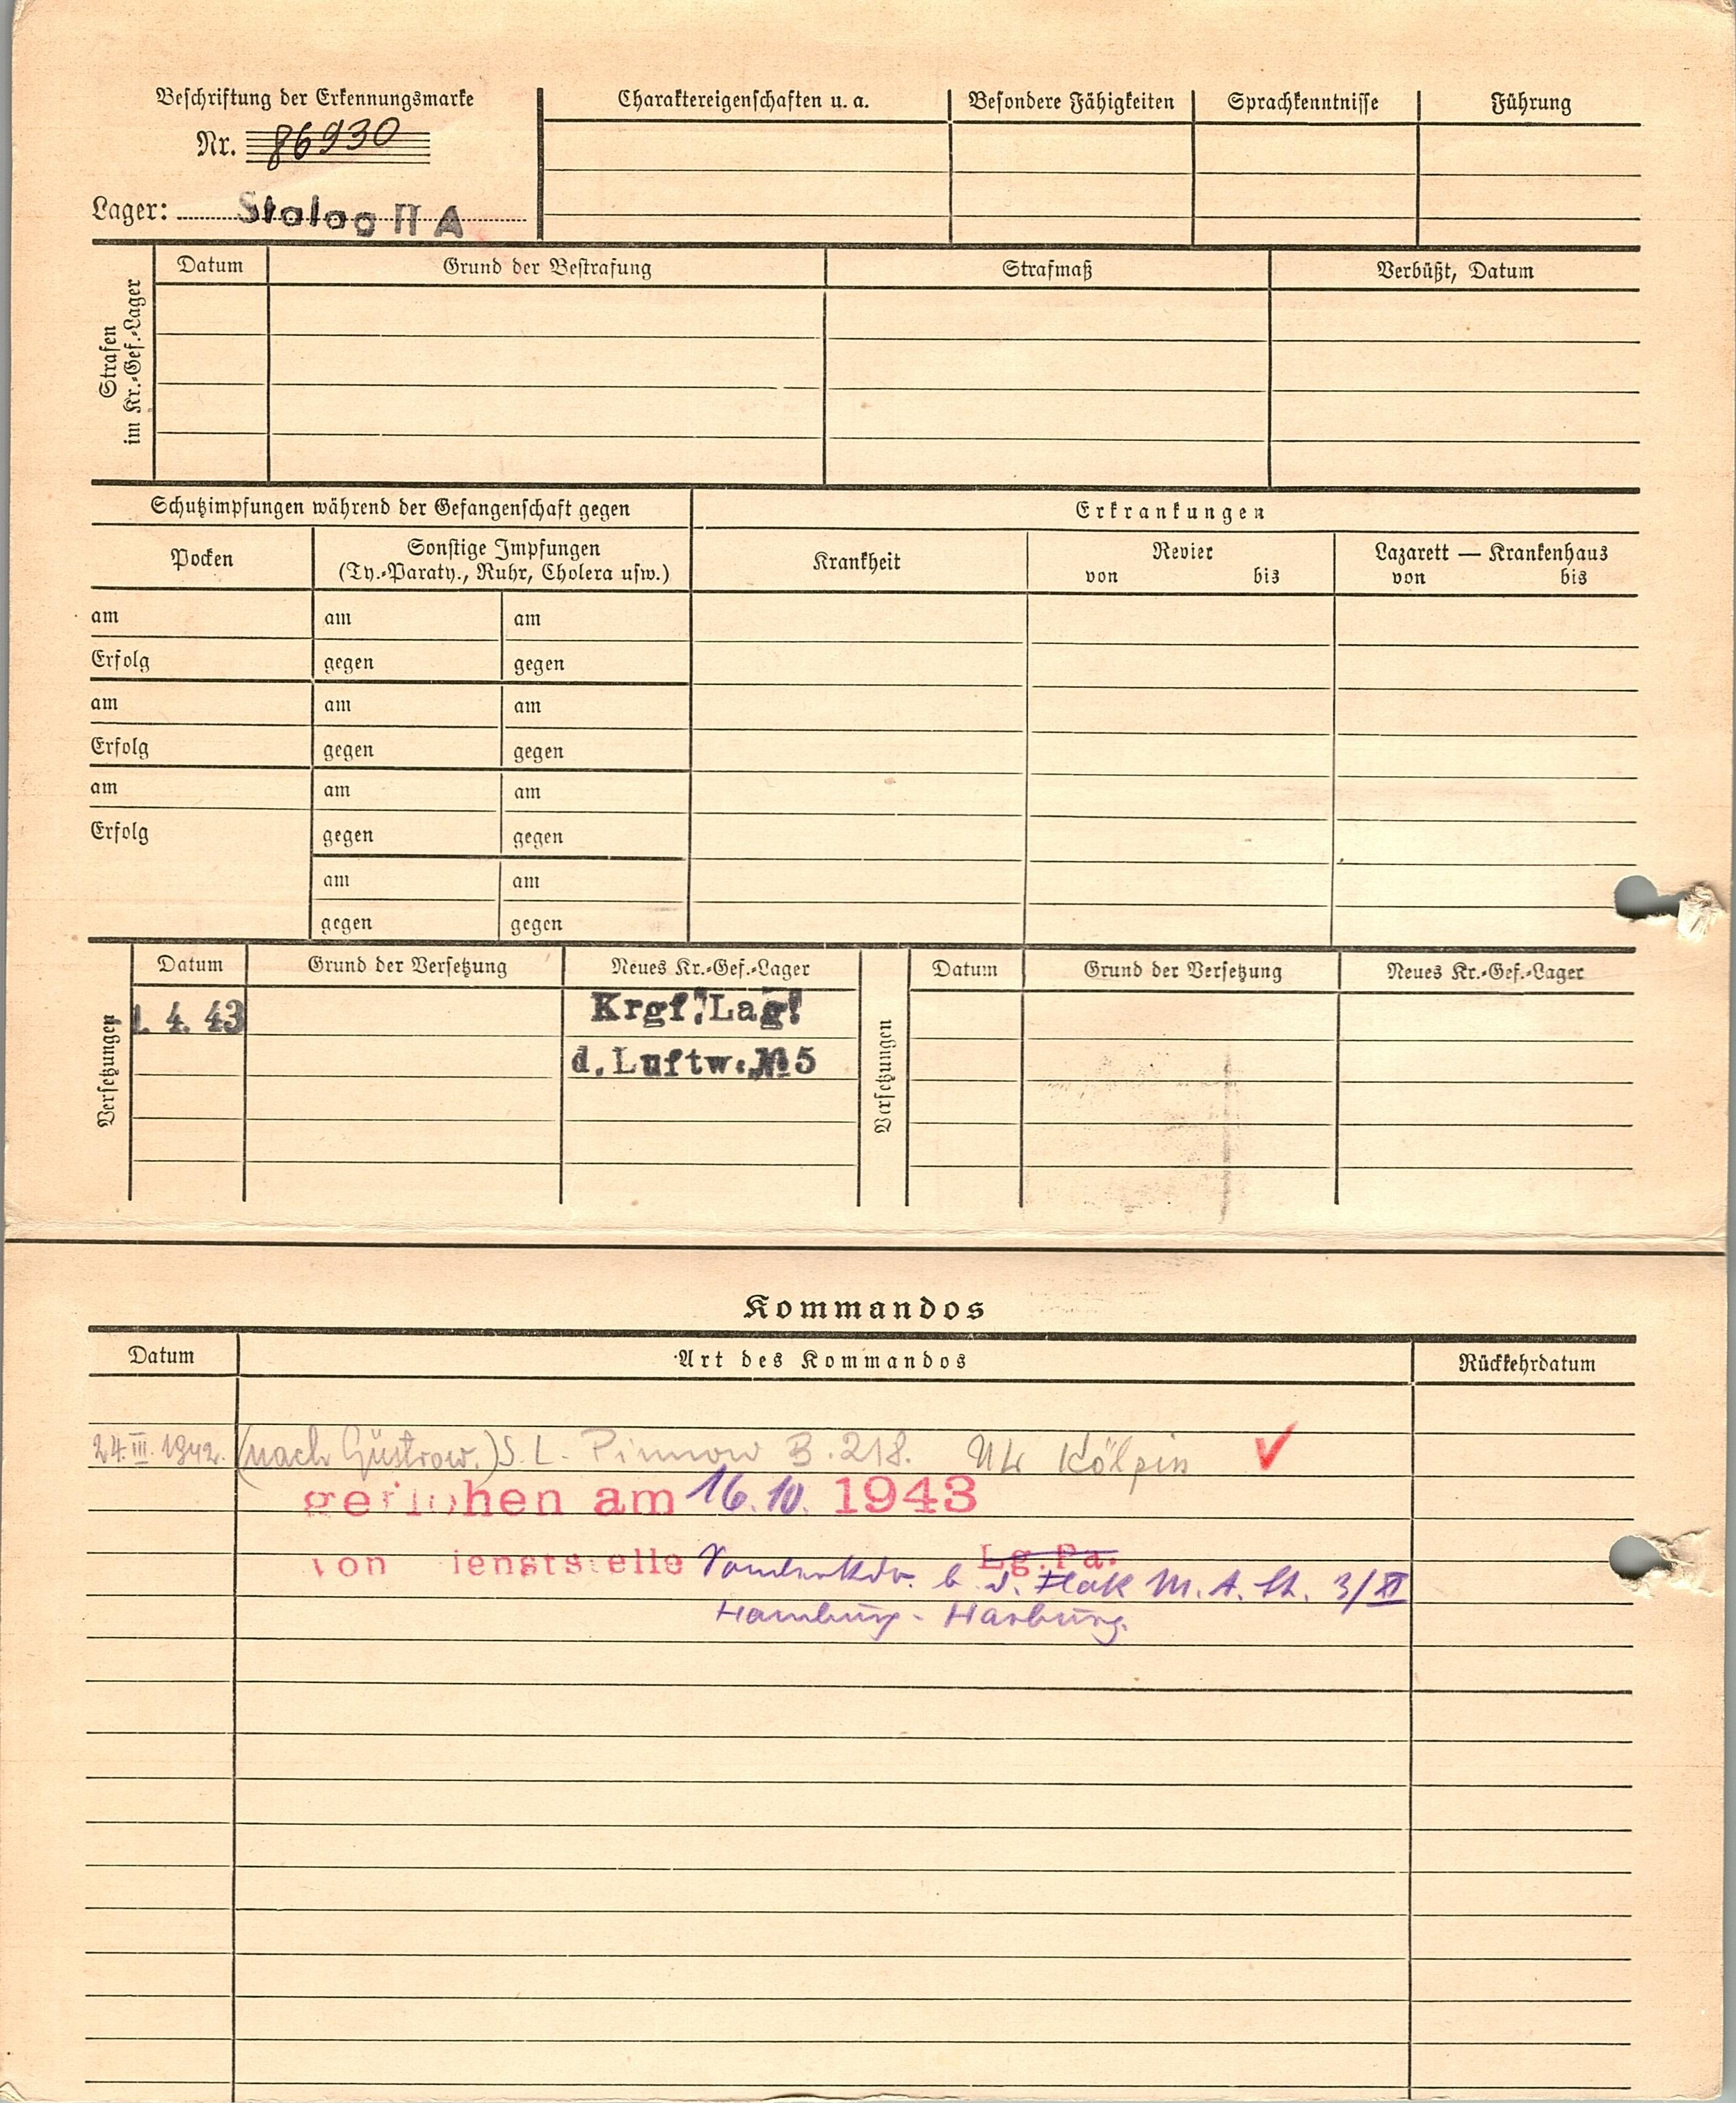 Beschriftung der Erkennungsmarke
Nr. 86930
Lager: Stalag II A
Charaktereigenschaften u. a. Besondere Fähigkeiten Sprachkenntnisse Führung
Strafen
im Kr.-Gef.-Lager
Datum Grund der Bestrafung Strafmaß Verbüßt, Datum
Schutzimpfungen während der Gefangenschaft gegen Erkrankungen
Pocken
Sonstige Impfungen
(Ty.-Paraty., Ruhr, Cholera usw.)
Krankheit
Revier
von bis
Lazarett — Krankenhaus
von bis
am am am
Erfolg gegen gegen
am am am
Erfolg gegen gegen
am am am
Erfolg gegen gegen
am am
gegen gegen
Versetzungen
Datum Grund der Versetzung Neues Kr.-Gef.-Lager
1. 4. 43 Krgf. Lag.
d. Luftw. № 5
Versetzungen
Datum Grund der Versetzung Neues Kr.-Gef.-Lager
Kommandos
Datum Art des Kommandos Rückkehrdatum
24.III.1942. (nach Güstrow.) S. L. Pinnow B. 218. Kölpin
am 16.10. 1943
von Lg.Pa.
b. d. Flak M. A. 3/XI
Hamburg - Harburg.